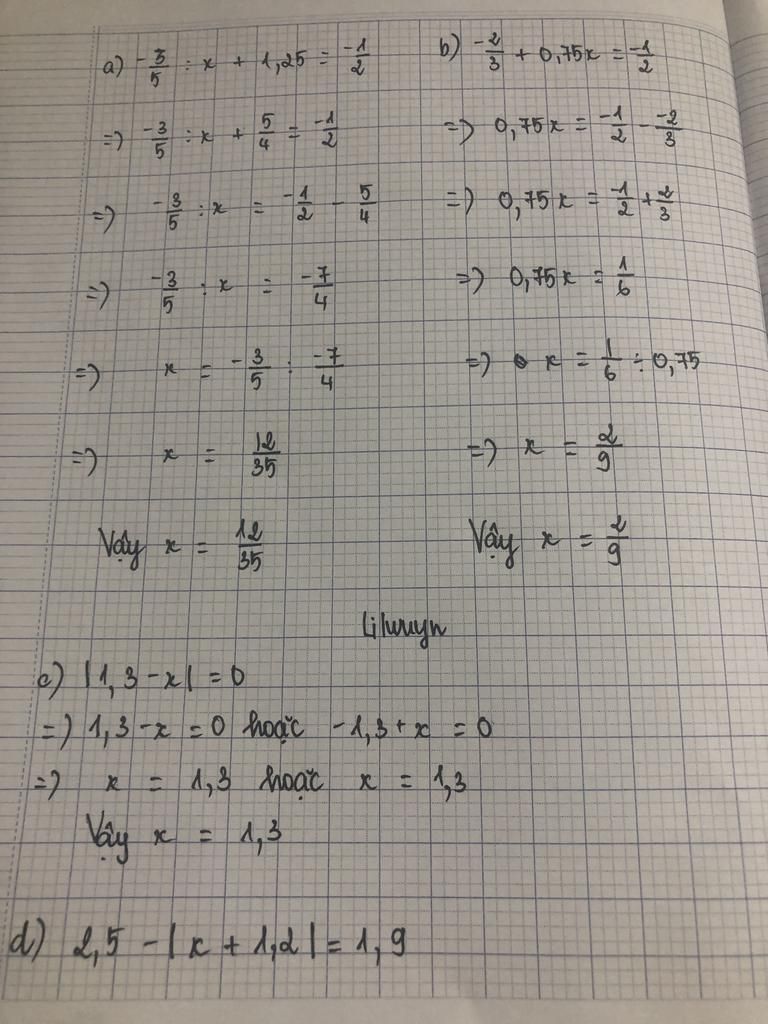 a) -3/5 : x + 1,25 = -1/2
=) -3/5 : x + 5/4 = -1/2
=) -3/5 : x = -1/2 - 5/4
=) -3/5 : x = -7/4
=) x = -3/5 : -7/4
=) x = 12/35
Vậy x = 12/35
b) -2/3 + 0,75x = -1/2
=) 0,75x = -1/2 - -2/3
=) 0,75x = -1/2 + 2/3
=) 0,75x = 1/6
=) x = 1/6 : 0,75
=) x = 2/9
Vậy x = 2/9
c) |1,3 - x| = 0
=) 1,3 - x = 0 hoặc -1,3 + x = 0
=) x = 1,3 hoặc x = 1,3
Vậy x = 1,3
d) 2,5 - |x + 1,2| = 1,9